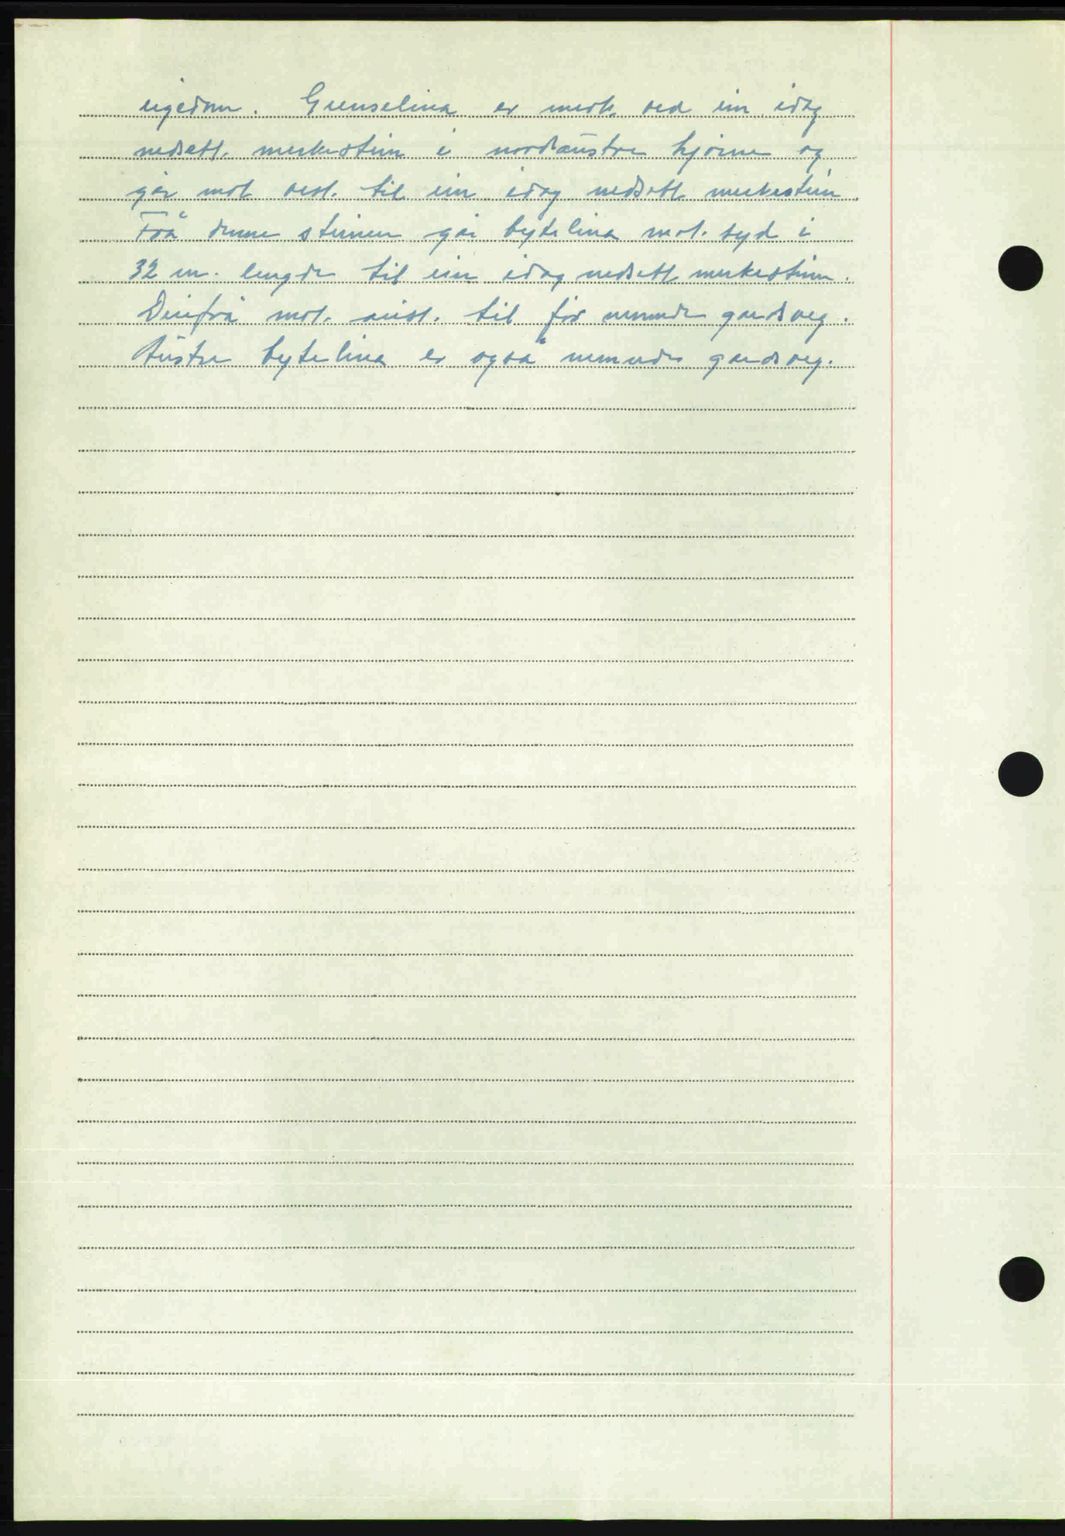 eigedom. Grenselina er merk. ved ein idag
nedsett. merkestein i nordaustre hjørne og
går mot vest. til ein idag nedsett merkestein.
Frå denne steinen går bytelina mot. syd i
32 m. lengde til ein idag nedsett merkestein.
Derifrå mot. aust. til før nemnde gardsveg.
Austre bytelina er også nemnde gardsveg.